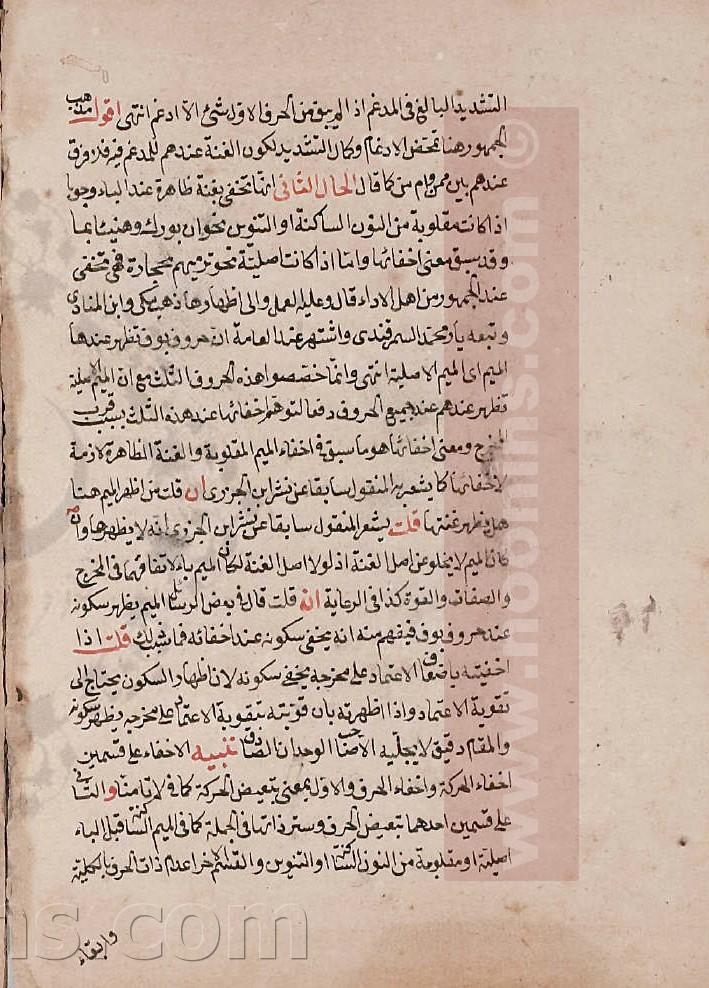 التشديد البالغ في المدغم اذ لم يبق من الحرف الاول شئ الا ادغم انتهى اقول مذهب
الجمهور هنا تمحض الادغام وكمال التشديد لكون الغنة عندهم للمدغم فيه فلا فرق
عندهم بين ممن وام من كما قال الحال الثاني انها تخفى بغنة ظاهرة عند الباء وجوبا
اذا كانت مقلوبة من النون الساكنة او التنوين نحو ان بورك وهنيئا بما
وقد سبق معنى اخفائها واما اذا كانت اصلية نحو ترميهم بحجارة فهي تخفى
عند الجمهور من اهل الاداء قال وعليه العمل والى اظهارها ذهب مكي وابن المنادي
وتبعه محمد السمرقندي واشتهر عند العامة ان حروف بوف تظهر عندها
الميم اى الميم الاصلية انتهى وانما خصصوا هذه الحروف الثلث مع ان الميم الاصلية
تظهر عندهم عند جميع الحروف دفعا لتوهم اخفائها عند هذه الثلث بسبب قرب
المخرج ومعنى اخفائها هو ما سبق في اخفاء الميم المقلوبة والغنة الظاهرة لازمة
لاخفائها كما يشعر به المنقول سابقا عن نشر ابن الجزري ان قلت من اظهر الميم هنا
هل يظهر غنتها قلت يشعر المنقول سابقا عن نشر ابن الجزري انه لا يظهرها وان
كان الميم لا يخلو عن اصل الغنة اذ لولا اصل الغنة لكان الميم باء لاتفاقهما في المخرج
والصفات والقوة كذا في الرعاية ان قلت قال في بعض الرسائل الميم يظهر سكونه
عند حروف بوف فيفهم منه انه يخفى سكونه عند اخفائه فما قلت اذا
اخفيته باضعاف الاعتماد على مخرجه يخفى سكونه لان اظهار السكون يحتاج الى
تقوية الاعتماد واذا اظهرته بان قويته بتقوية الاعتماد على مخرجه ويظهر سكونه
والمقام دقيق لا يجليه الا صاحب الوجدان الصادق تنبيه الاخفاء على قسمين
اخفاء الحركة واخفاء الحرف والاول بمعنى تبعيض الحركة كما في لا تامنا والثاني
على قسمين احدهما تبعيض الحرف وستر ذاتها في الجملة كما في الميم الساكنة قبل الباء
اصلية او مقلوبة من النون الساكنة او التنوين والقسم الاخر اعدام ذات الحرف بالكلية
وابقاء
www.noormis.com
ms.com